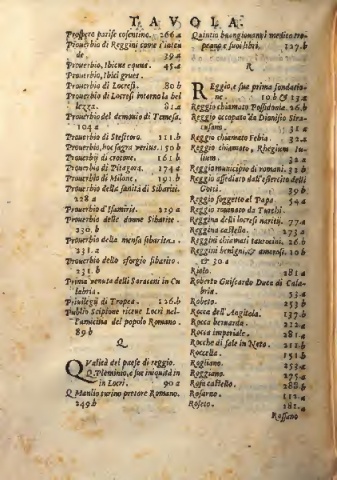 TAVOLA.
Prospero parise cosentino. 266 a
Prouerbio di Reggini come s'inten
de. 39 a
Prouerbio, Ibicus equus. 45 a
Prouerbio, Ibici grues.
Prouerbio di Locresi. 80 b
Prouerbio di Locresi intorno la bel
lezza. 81 a
Prouerbio del demonio di Temesa.
104 a
Prouerbio di Stesicoro. 111 b
Prouerbio, hoc sagra verius. 150 b
Prouerbij di crotone. 161 b
Prouerbio di Pitagora. 174 a
Prouerbio di Milone. 191 b
Prouerbio della sanità di Sibariti.
228 a
Prouerbio d'Ismirire. 229 a
Prouerbio delle donne Sibarite.
230. b
Prouerbio della mensa sibarita.
231. a
Prouerbio dello sforgio sibarito.
231. b
Prima venuta delli Saraceni in Ca
labria.
Priuilegij di Tropea. 126. b
Publio Scipione riceue Locri nel-
l'amicitia del popolo Romano.
89 b
Q
Qualità del paese di reggio.
Q. Pleminio, e sue iniquità in
in Locri. 90 a
Q Manlio turino pretore Romano.
249 b
Quinto buongionanni medico tro-
peano e suoi libri. 127. b
R
Reggio, e sua prima fondatio
ne 10 b & 13 a
Reggio chiamato Possidonia. 26. b
Reggio occupato da Dionisio Sira-
cusano. 31 a
Reggio chiamato Febia. 32 a
Reggio chiamato, Rhegium Iu-
lium. 32 a
Reggio municipio di romani. 32 b
Reggio assediato dall'esercito delli
Gotti. 39 b
Reggio soggetto al Papa 54 a
Reggio rouinato da Turchi.
Reggina delli locresi naritij. 77 a
Reggina castello. 273 a
Reggini chiamati taurocini. 26 b
Reggini benigni, & amorosi. 10 b
& 30 a
Rialo. 281 a
Roberto Guiscardo Duca di Cala-
bria. 53. a
Robeto. 253 b
Rocca dell'Angitola. 137. b
Rocca bernarda. 212 a
Rocca imperiale. 281. a
Rocche di sale in Neto. 211. b
Roccella. 151 b
Rogliano. 253 a
Roggiano. 275 a
Rosa castello. 288 b
Rosarno. 112. a
Roseto. 281. a
Rossano